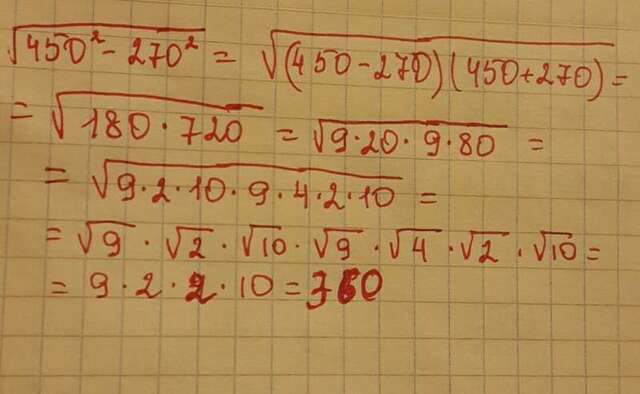 √450² - 270² = √(450 - 270)(450 + 270) =
= √180 · 720 = √9 · 20 · 9 · 80 =
= √9 · 2 · 10 · 9 · 4 · 2 · 10 =
= √9 · √2 · √10 · √9 · √4 · √2 · √10 =
= 9 · 2 · 2 · 10 = 360